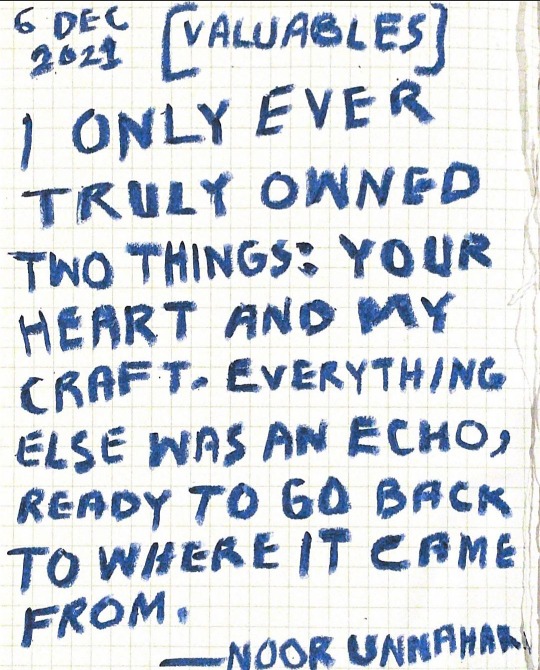 6 DEC
2021
[VALUABLES]
I ONLY EVER
TRULY OWNED
TWO THINGS: YOUR
HEART AND MY
CRAFT. EVERYTHING
ELSE WAS AN ECHO,
READY TO GO BACK
TO WHERE IT CAME
FROM.
—NOOR UNNAHAR